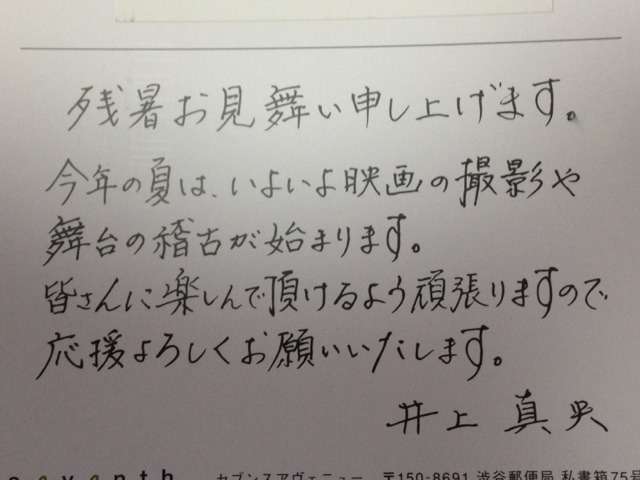 残暑お見舞い申し上げます。
今年の夏は、いよいよ映画の撮影や
舞台の稽古が始まります。
皆さんに楽しんで頂けるよう頑張りますので
応援よろしくお願いいたします。
井上 真央
セブンスアヴェニュー 〒150-8691 渋谷郵便局 私書箱75号